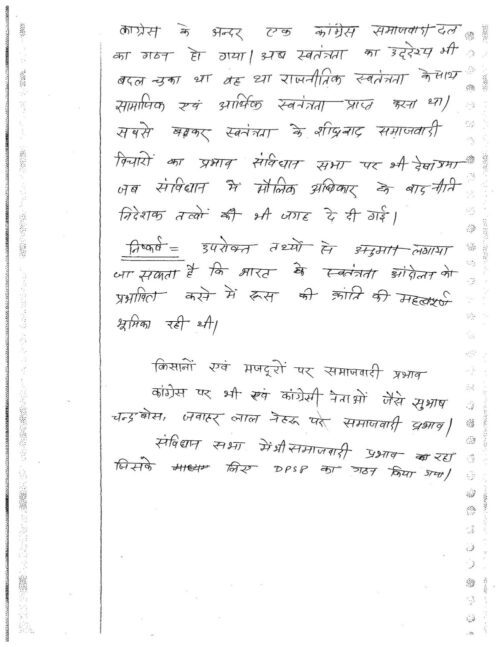 कांग्रेस के अन्दर एक कांग्रेस समाजवादी दल
का गठन हो गया। अब स्वतंत्रता का उद्देश्य भी
बदल चुका था वह था राजनीतिक स्वतंत्रता के साथ
सामाजिक एवं आर्थिक स्वतंत्रता प्राप्त करना था।
सबसे बढ़कर स्वतंत्रता के शीघ्रबाद समाजवादी
विचारों का प्रभाव संविधान सभा पर भी देखा गया
जब संविधान में मौलिक अधिकार के बाद नीति
निदेशक तत्वों की भी जगह दे दी गई।
निष्कर्ष = उपरोक्त तथ्यों से अनुमान लगाया
जा सकता है कि भारत के स्वतंत्रता आंदोलन को
प्रभावित करने में रूस की क्रांति की महत्वपूर्ण
भूमिका रही थी।
किसानों एवं मजदूरों पर समाजवादी प्रभाव
कांग्रेस पर भी एवं कांग्रेसी नेताओं जैसे सुभाष
चन्द्र बोस, जवाहर लाल नेहरू पर समाजवादी प्रभाव।
संविधान सभा में भी समाजवादी प्रभाव रहा
जिसके लिए DPSP का गठन किया गया।